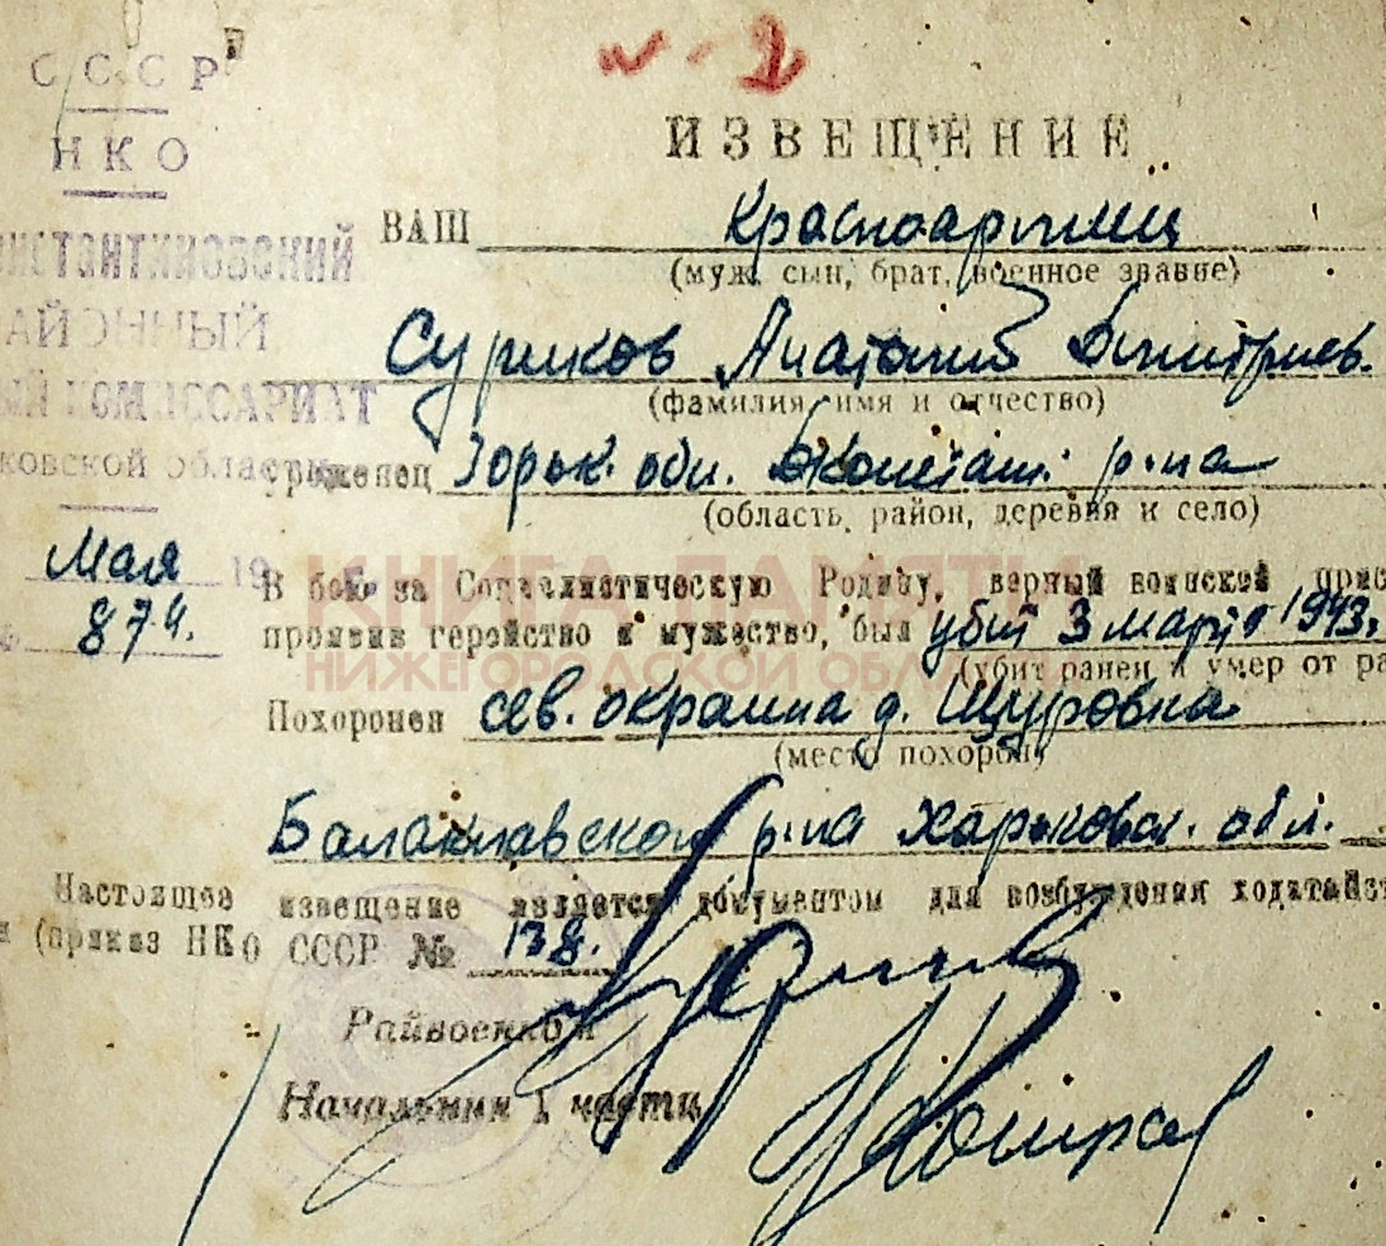 N-2
СССР
НКО
ИЗВЕЩЕНИЕ
ВАШ Красноармеец
(муж, сын, брат, военное звание)
КОНСТАНТИНОВСКИЙ
РАЙОННЫЙ
КОМИССАРИАТ
Суриков Анатолий Дмитриев.
(фамилия, имя и отчество)
уроженец Горьк. обл. р-на
(область, район, деревня и село)
Мая 19
874.
В бою за Социалистическую Родину, верный воинской прис
проявив геройство и мужество, был убит 3 марта 1943.
(убит ранен и умер от ра
Похоронен сев. окраина д. Щуровка
(место похорон)
Балаклавского р-на Харьковск. обл.
Настоящее извещение является документом для возбуждения ходатайст
(приказ НКО СССР № 138.
Райвоенком
Начальник 1 части
КНИГА ПАМЯТИ
НИЖЕГОРОДСКОЙ ОБЛАСТИ